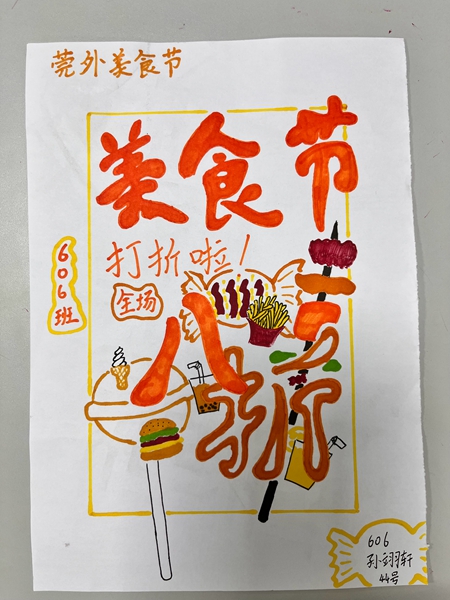 莞外美食节
美食节
打折啦!
606班
全场
八折
606
孙翊轩
44号